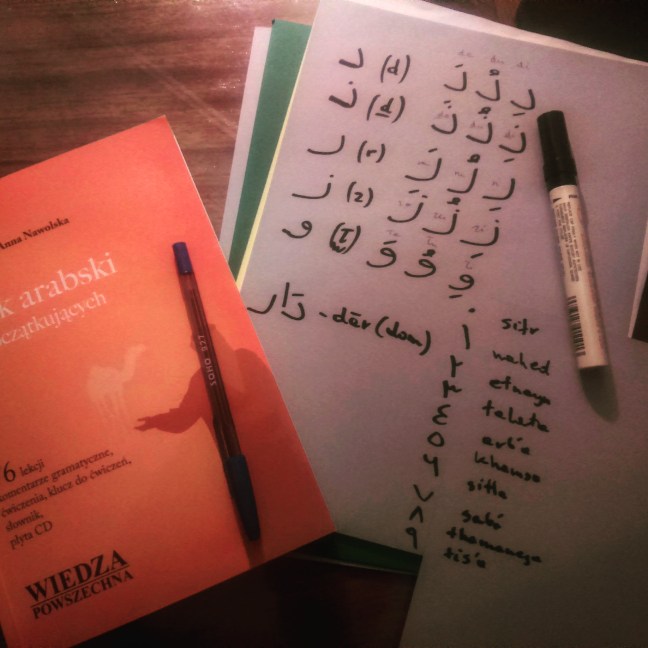 Anna Nawolska
k arabski
oczątkujących
6 lekcji
komentarze gramatyczne,
ćwiczenia, klucz do ćwiczeń,
słownik,
płyta CD
WIEDZA
POWSZECHNA
SOHO
د (d) دَ دُ دِ
da du di
ذ (d) ذَ ذُ ذِ
ر (r) رَ رُ رِ
ز (z) زَ زُ زِ
و وَ وُ وِ
دَار - dēr (dom)
٠ sifr
١ wahed
٢
٣ teleta
٤ arb'a
٥ khamsa
٦ sitta
٧
٨ thamaneya
٩ tis'a